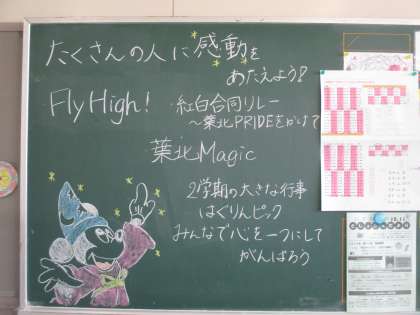 たくさんの人に感動を
あたえよう!
Fly High!
紅白合同リレー
～葉北PRIDEをかけて
葉北Magic
2学期の大きな行事
はぐりんピック
みんなで心を一つにして
がんばろう